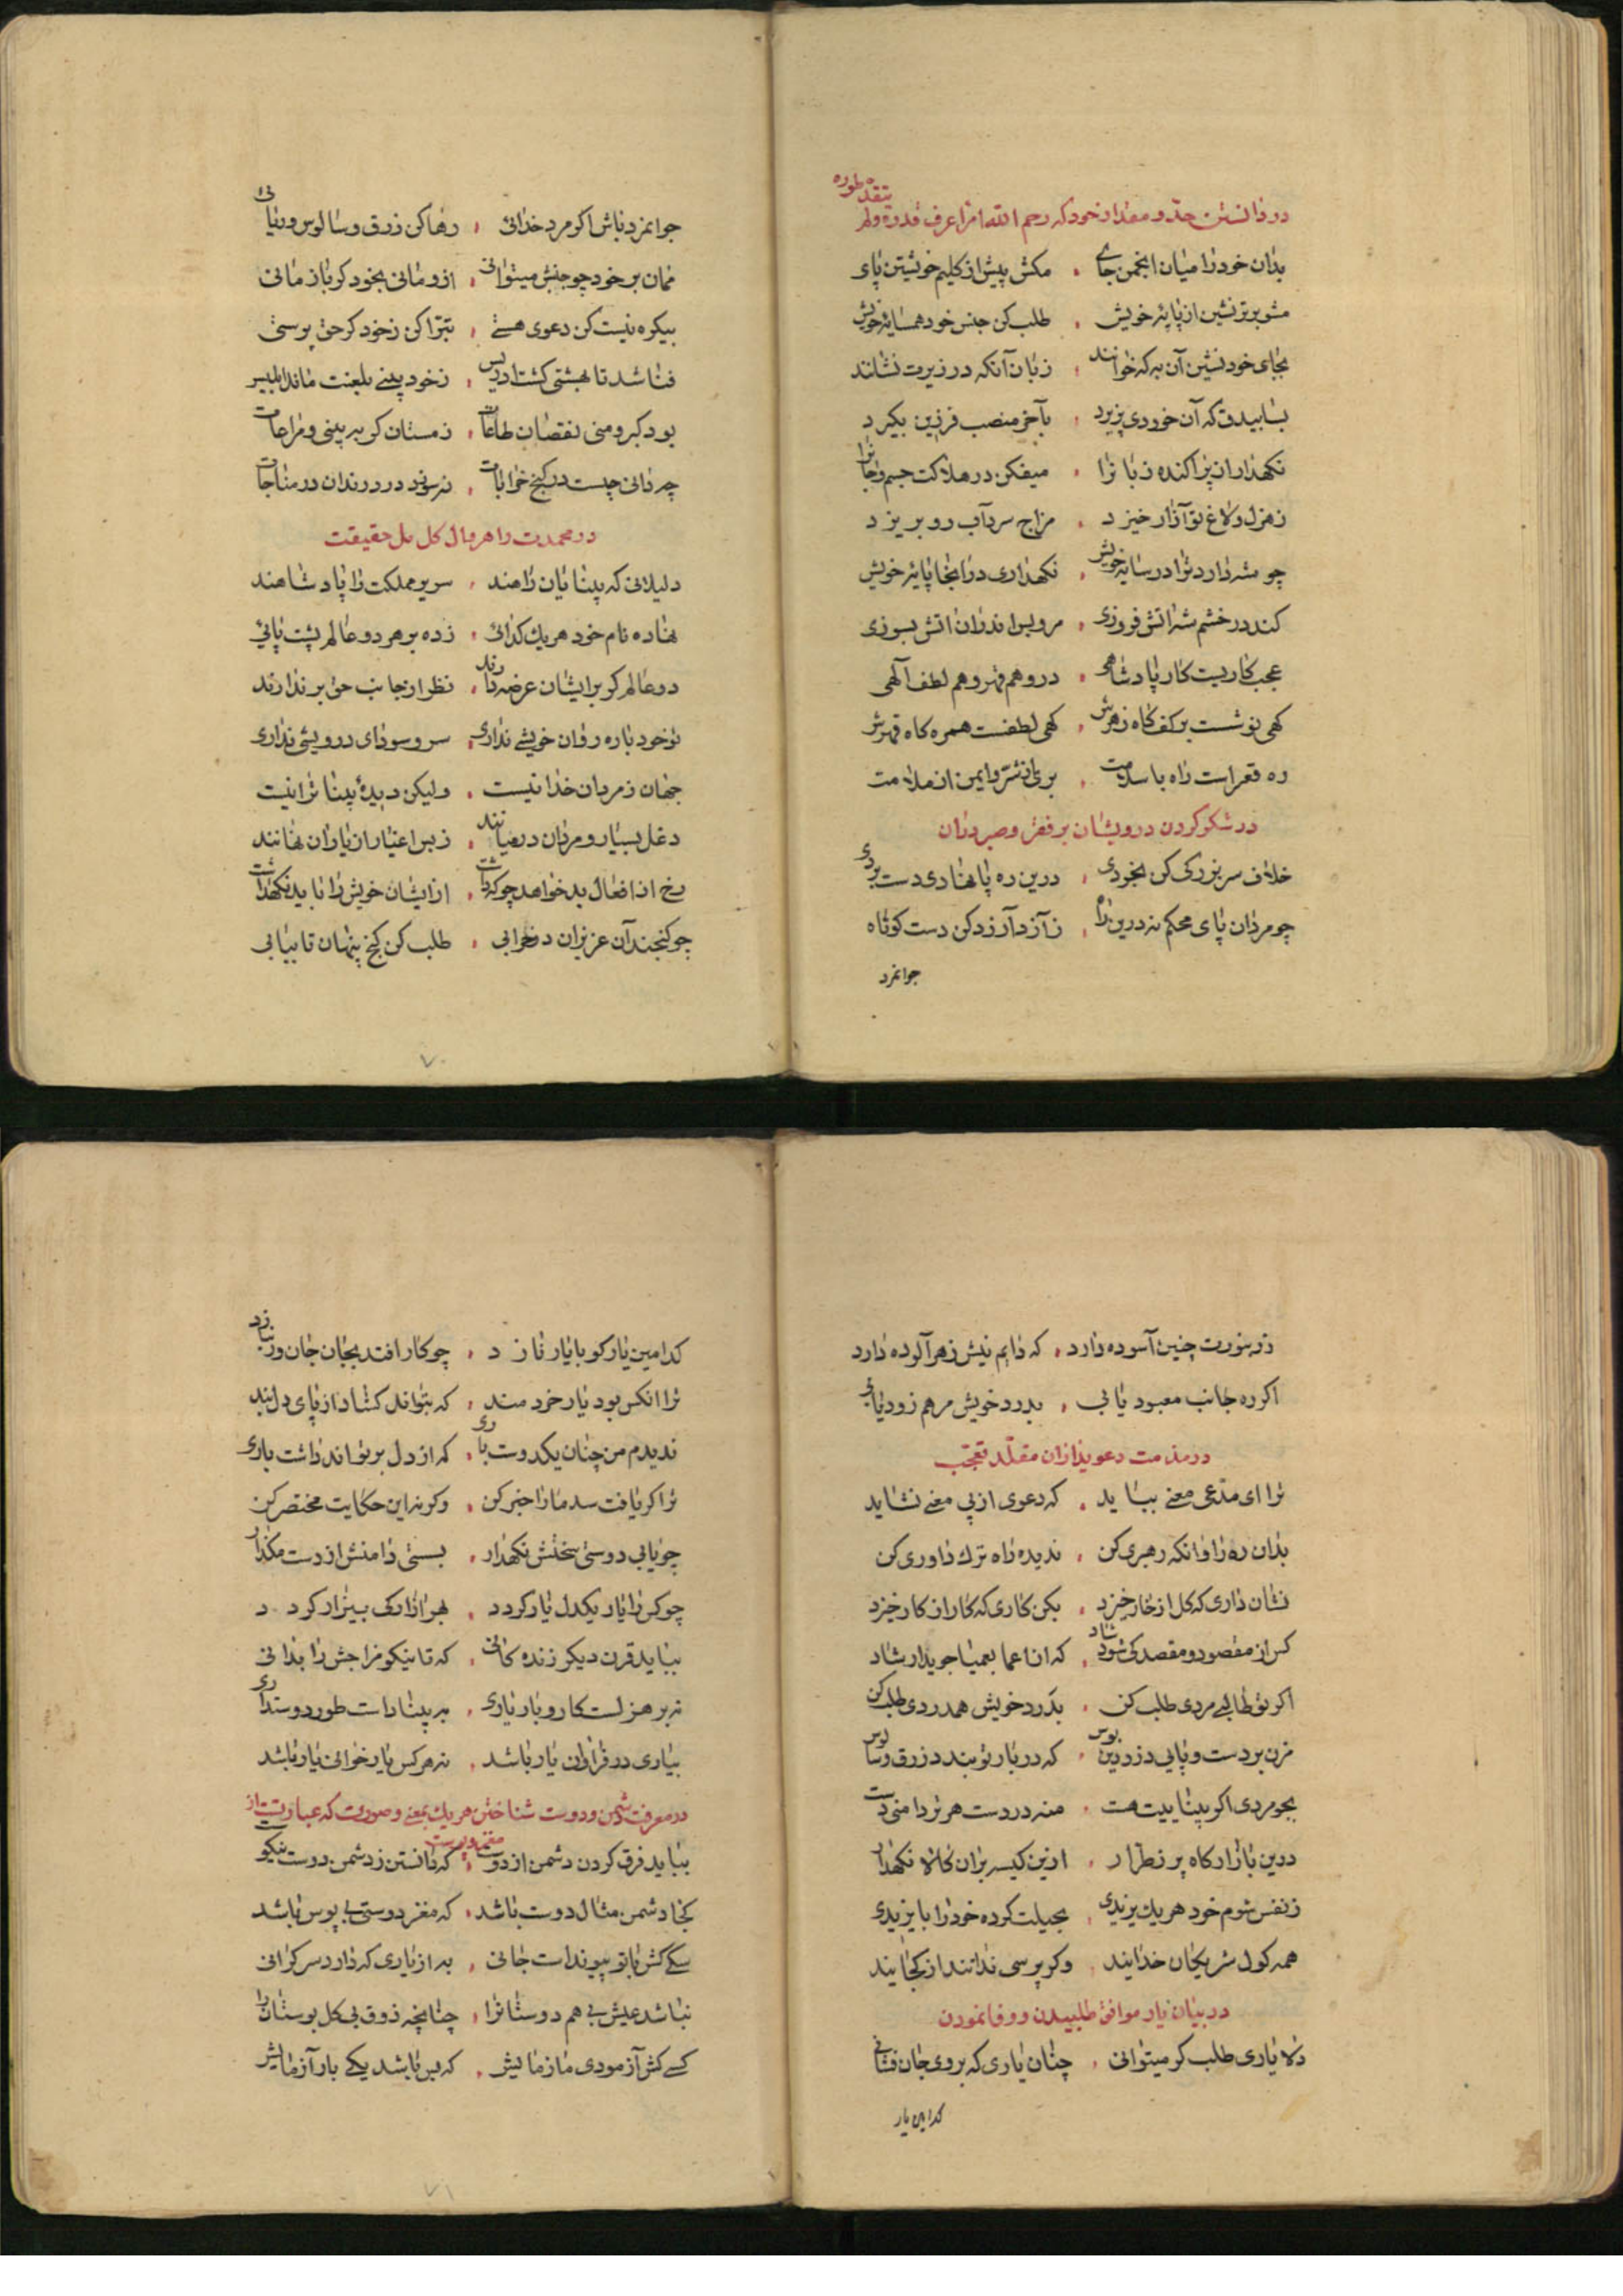 در دانستن حدّ و مقدار خود که رحم الله امرأ عرف قدره ولم یتعدّ طوره
بدان خود را میان انجمن جای ، مکش پیش از کلیم خویشتن پای
مشو برتر نشین از پایهٔ خویش ، طلب کن جنس خود همسایهٔ خویش
بجای خود نشین آن به که خوانند ، زبان آنکه در زیرت نشانند
بسا بیدق که آن خوردی پزیرد ، بآخر منصب فرزین بکیرد
نکهدار از پراکنده زبانرا ، میفکن در هلاکت جسم و جانرا
ز هزل و لاغ تو آزار خیزد ، مزاج سرد آب رو بریزد
چو شه دارد ترا در سایهٔ خویش ، نکهداری در انجا پایهٔ خویش
کند در خشم شه اتش فروزی ، مرو بس اندران اتش بسوزی
عجب کاریست کار پادشاهی ، درو هم قهر و هم لطف آلهی
کهی نوشست بر کف کاه زهرش ، کهی لطفست همره کاه قهرش
ره قعر است راه با سلامت ، برای از شرّ وایمن از ملامت
در شکر کردن درویشان بر فقر و صبر در آن
خلاف سر بزرکی کن بخوردی ، درین ره پا نهادی دست بردی
چو مردان پای محکم نه درین راه ، ز آز و آرزو کن دست کوتاه
جوانمرد
جوانمرد باش اکر مرد خدائی ، رها کن زرق و سالوس و ریائی
ممان بر خود چو جنبش میتوانی ، ازو مانی بخود کر باز مانی
بیکره نیست کن دعوی هستی ، تبرّا کن ز خود کر حق پرستی
فنا شد تا بهشتی کشت ادریس ، ز خود بینی بلعنت ماند ابلیس
بود کبر و منی نقصان طاعات ، ز مستان کر به بینی و مراعات
چه دانی چیست در کنج خرابات ، ز سوز و درد رندان در مناجات
در محمدت راهروان کامل حقیقت
دلیلانی که بینایان راهند ، سریر مملکت را پادشاهند
نهاده نام خود هر یک کدائی ، زده بر هر دو عالم پشت پائی
دو عالم کر بر ایشان عرضه دارند ، نظر از جانب حق بر ندارند
تو خود باره روان خویشی نداری ، سر و سودای درویشی نداری
جهان ز مردان خدا نیست ، ولیکن دیدهٔ بینا ترا نیست
دغل بسیار و مردان در میانند ، ز بس اغیار از یاران نهانند
رخ از افعال بد خواهد چو که داشت ، از ایشان خویش را باید نکهداشت
چو کنجند آن عزیزان در خرابی ، طلب کن کنج پنهان تا بیابی
٧٠
زنبورت چنین آسوده دارد ، که دایم نیش زهر آلوده دارد
اکر ره جانب معبود یابی ، بدرد خویش مرهم زود یابی
در مذمت دعویداران مقلّد تعجّب
ترا ای مدّعی معنی بباید ، که دعوی از پی معنی نشاید
بدان ره را وانکه رهبری کن ، ندیده راه ترک داوری کن
نشان داری که کل از خار خیزد ، بکن کاری که کار از کار خیزد
کس از مقصود و مقصد کی شود شاد ، که از اعما بعمیا جوید ارشاد
اکر تو طالبی مردی طلب کن ، بدرد خویش همدردی طلب کن
مزن بر دست و پای دزد دین بوس ، که در بار تو بندد زرق و سالوس
بجو مردی اکر بیناییت هست ، منه در دست هر تر دامنی دست
درین بازارکاه پر ز طرّار ، ازین کیسه بران کالا نکهدار
ز نفس شوم خود هر یک یزیدی ، بحیلت کرده خود را بایزیدی
همه کول شریکان خدایند ، وکر پرسی ندانند از کجایند
در بیان یار موافق طلبیدن و وفا نمودن
دلا یاری طلب کر میتوانی ، چنان یاری که بر وی جان فشانی
کدامین یار
کدامین یار کو با یار نازد ، چو کار افتد بجان جان ور ببازد
ترا انکس بود یار خردمند ، که بتواند کشاد از پای دل بند
ندیدم من چنان یکدوست باری ، که از دل بر تواند داشت باری
ترا کر یافت سد ما را خبر کن ، وکر نه این حکایت مختصر کن
چو یابی دوستی سختش نکهدار ، بسستی دامنش از دست مکذار
چو کس را یار یکدل یار کردد ، بهر ازار کی بیزار کردد
بباید قرن دیکر زندکانی ، که تا نیکو مزاجش را بدانی
نه بر هزلست کار و بار یاری ، به بیناداست طور دوستداری
بیاری در فراوان یار باشد ، نه هر کس یار خوانی یار باشد
در معرفت دشمن و دوست شناختن هر یک بمعنی و صورت که عبارتست از مغز و پوست
بباید فرق کردن دشمن از دوست ، که دانستن ز دشمن دوست نیکوست
کجا دشمن مثال دوست باشد ، که مغز دوستی بی پوس باشد
سکی کش با تو پیوند است جانی ، به از یاری که دارد سر کرانی
نباشد عیش بی هم دوستانرا ، چنانچه ذوق بی کل بوستانرا
کسی کش آزمودی مازمایش ، که بس باشد یکی بار آزمایش
٧١